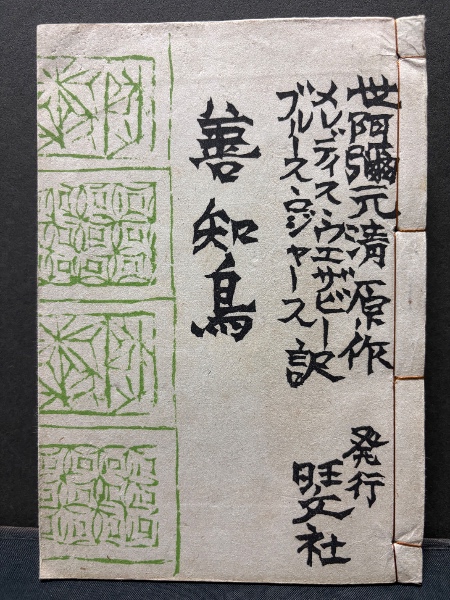 世阿彌元清原作
メレディス・ウエザビー
ブルース・ロジャース訳
善知鳥
発行
旺文社